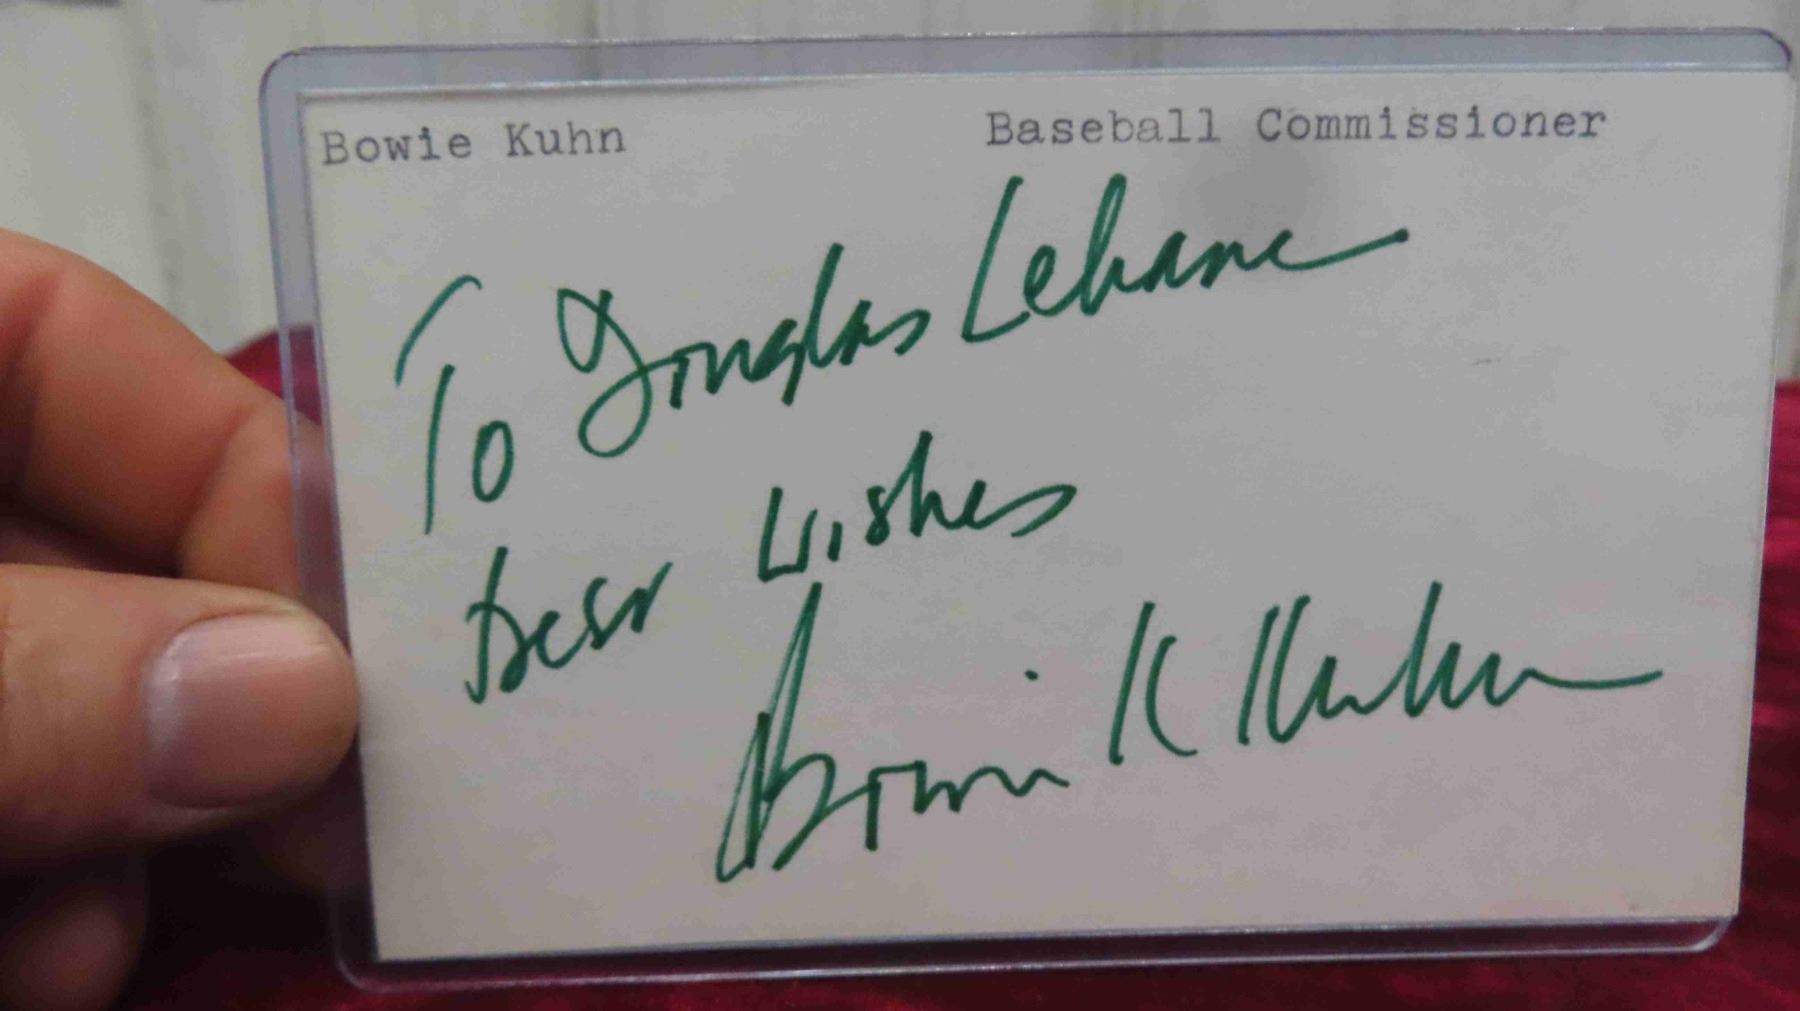 Bowie Kuhn Baseball Commissioner
To Douglas Lehane
Best Wishes
Bowie K Kuhn